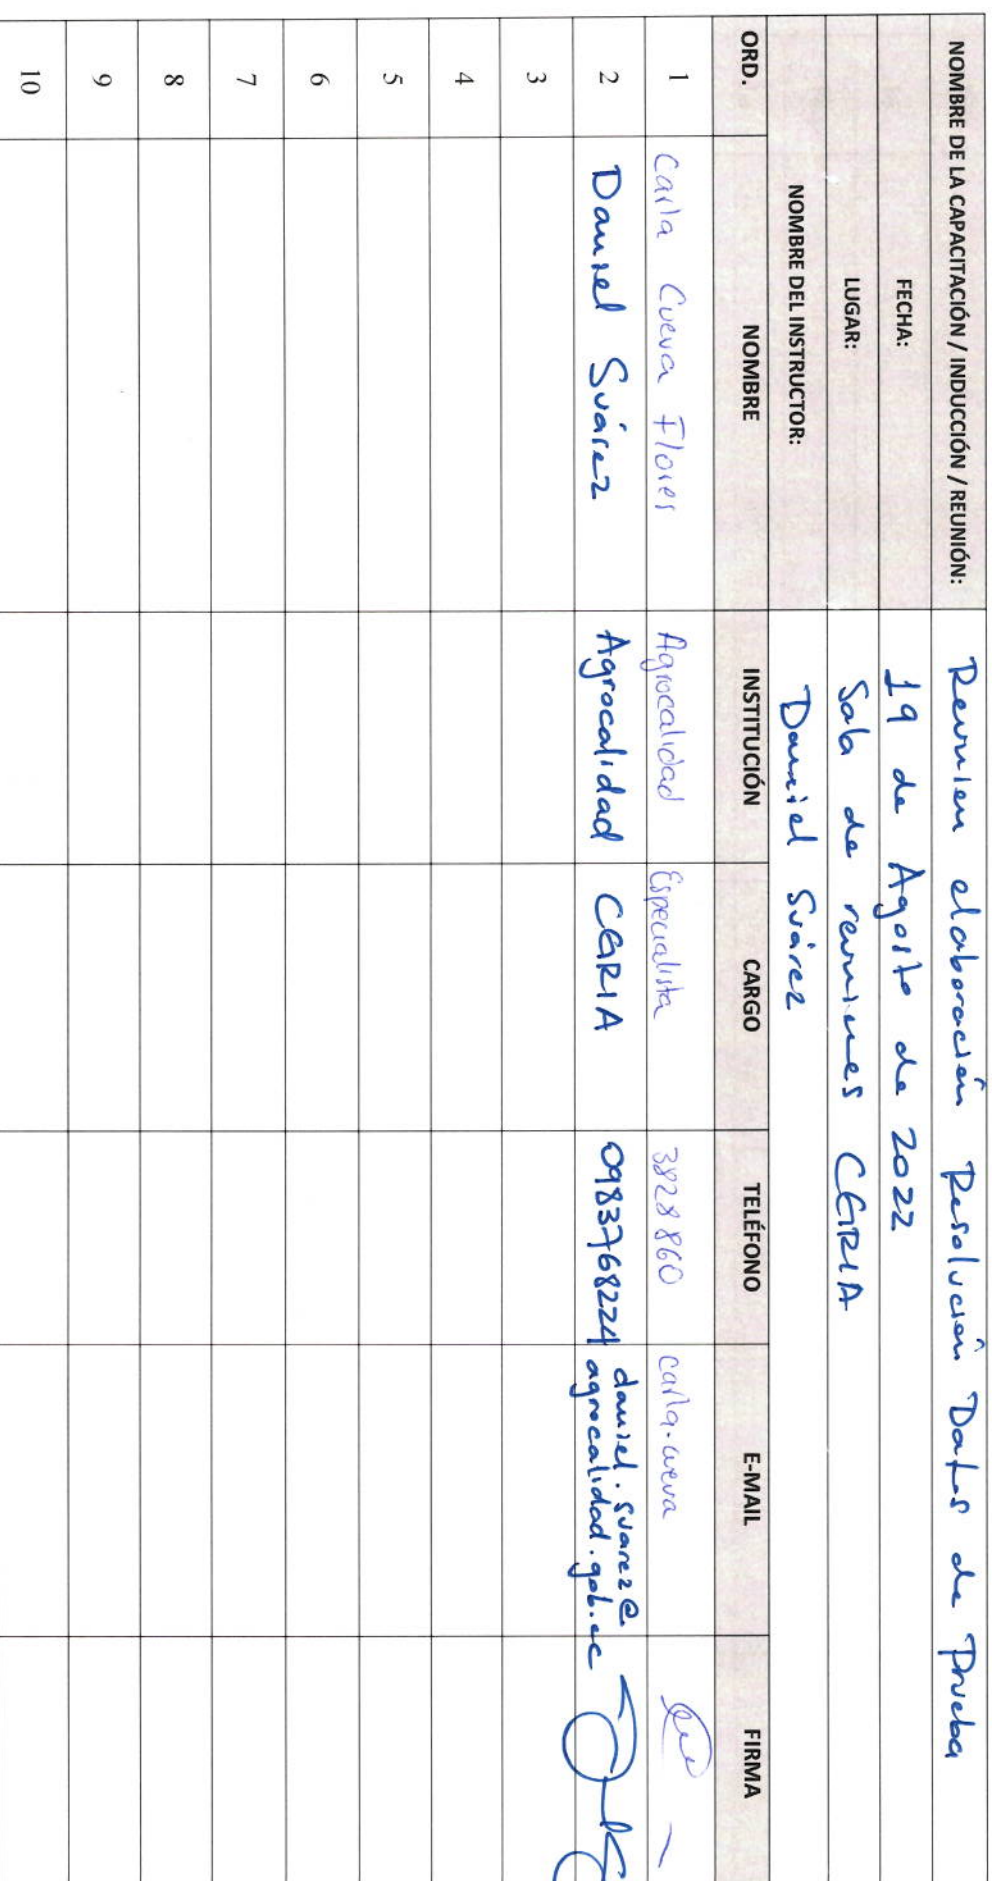 NOMBRE DE LA CAPACITACIÓN / INDUCCIÓN / REUNIÓN: Reunión elaboración Resolución Datos de Prueba
FECHA: 19 de Agosto de 2022
LUGAR: Sala de reuniones CGRIA
NOMBRE DEL INSTRUCTOR: Daniel Suárez
ORD. NOMBRE INSTITUCIÓN CARGO TELÉFONO E-MAIL FIRMA
1 Carla Cueva Flores Agrocalidad Especialista 3828860 carla.cueva
2 Daniel Suárez Agrocalidad CGRIA 0983768224 daniel.suarez@
agrocalidad.gob.ec
3
4
5
6
7
8
9
10